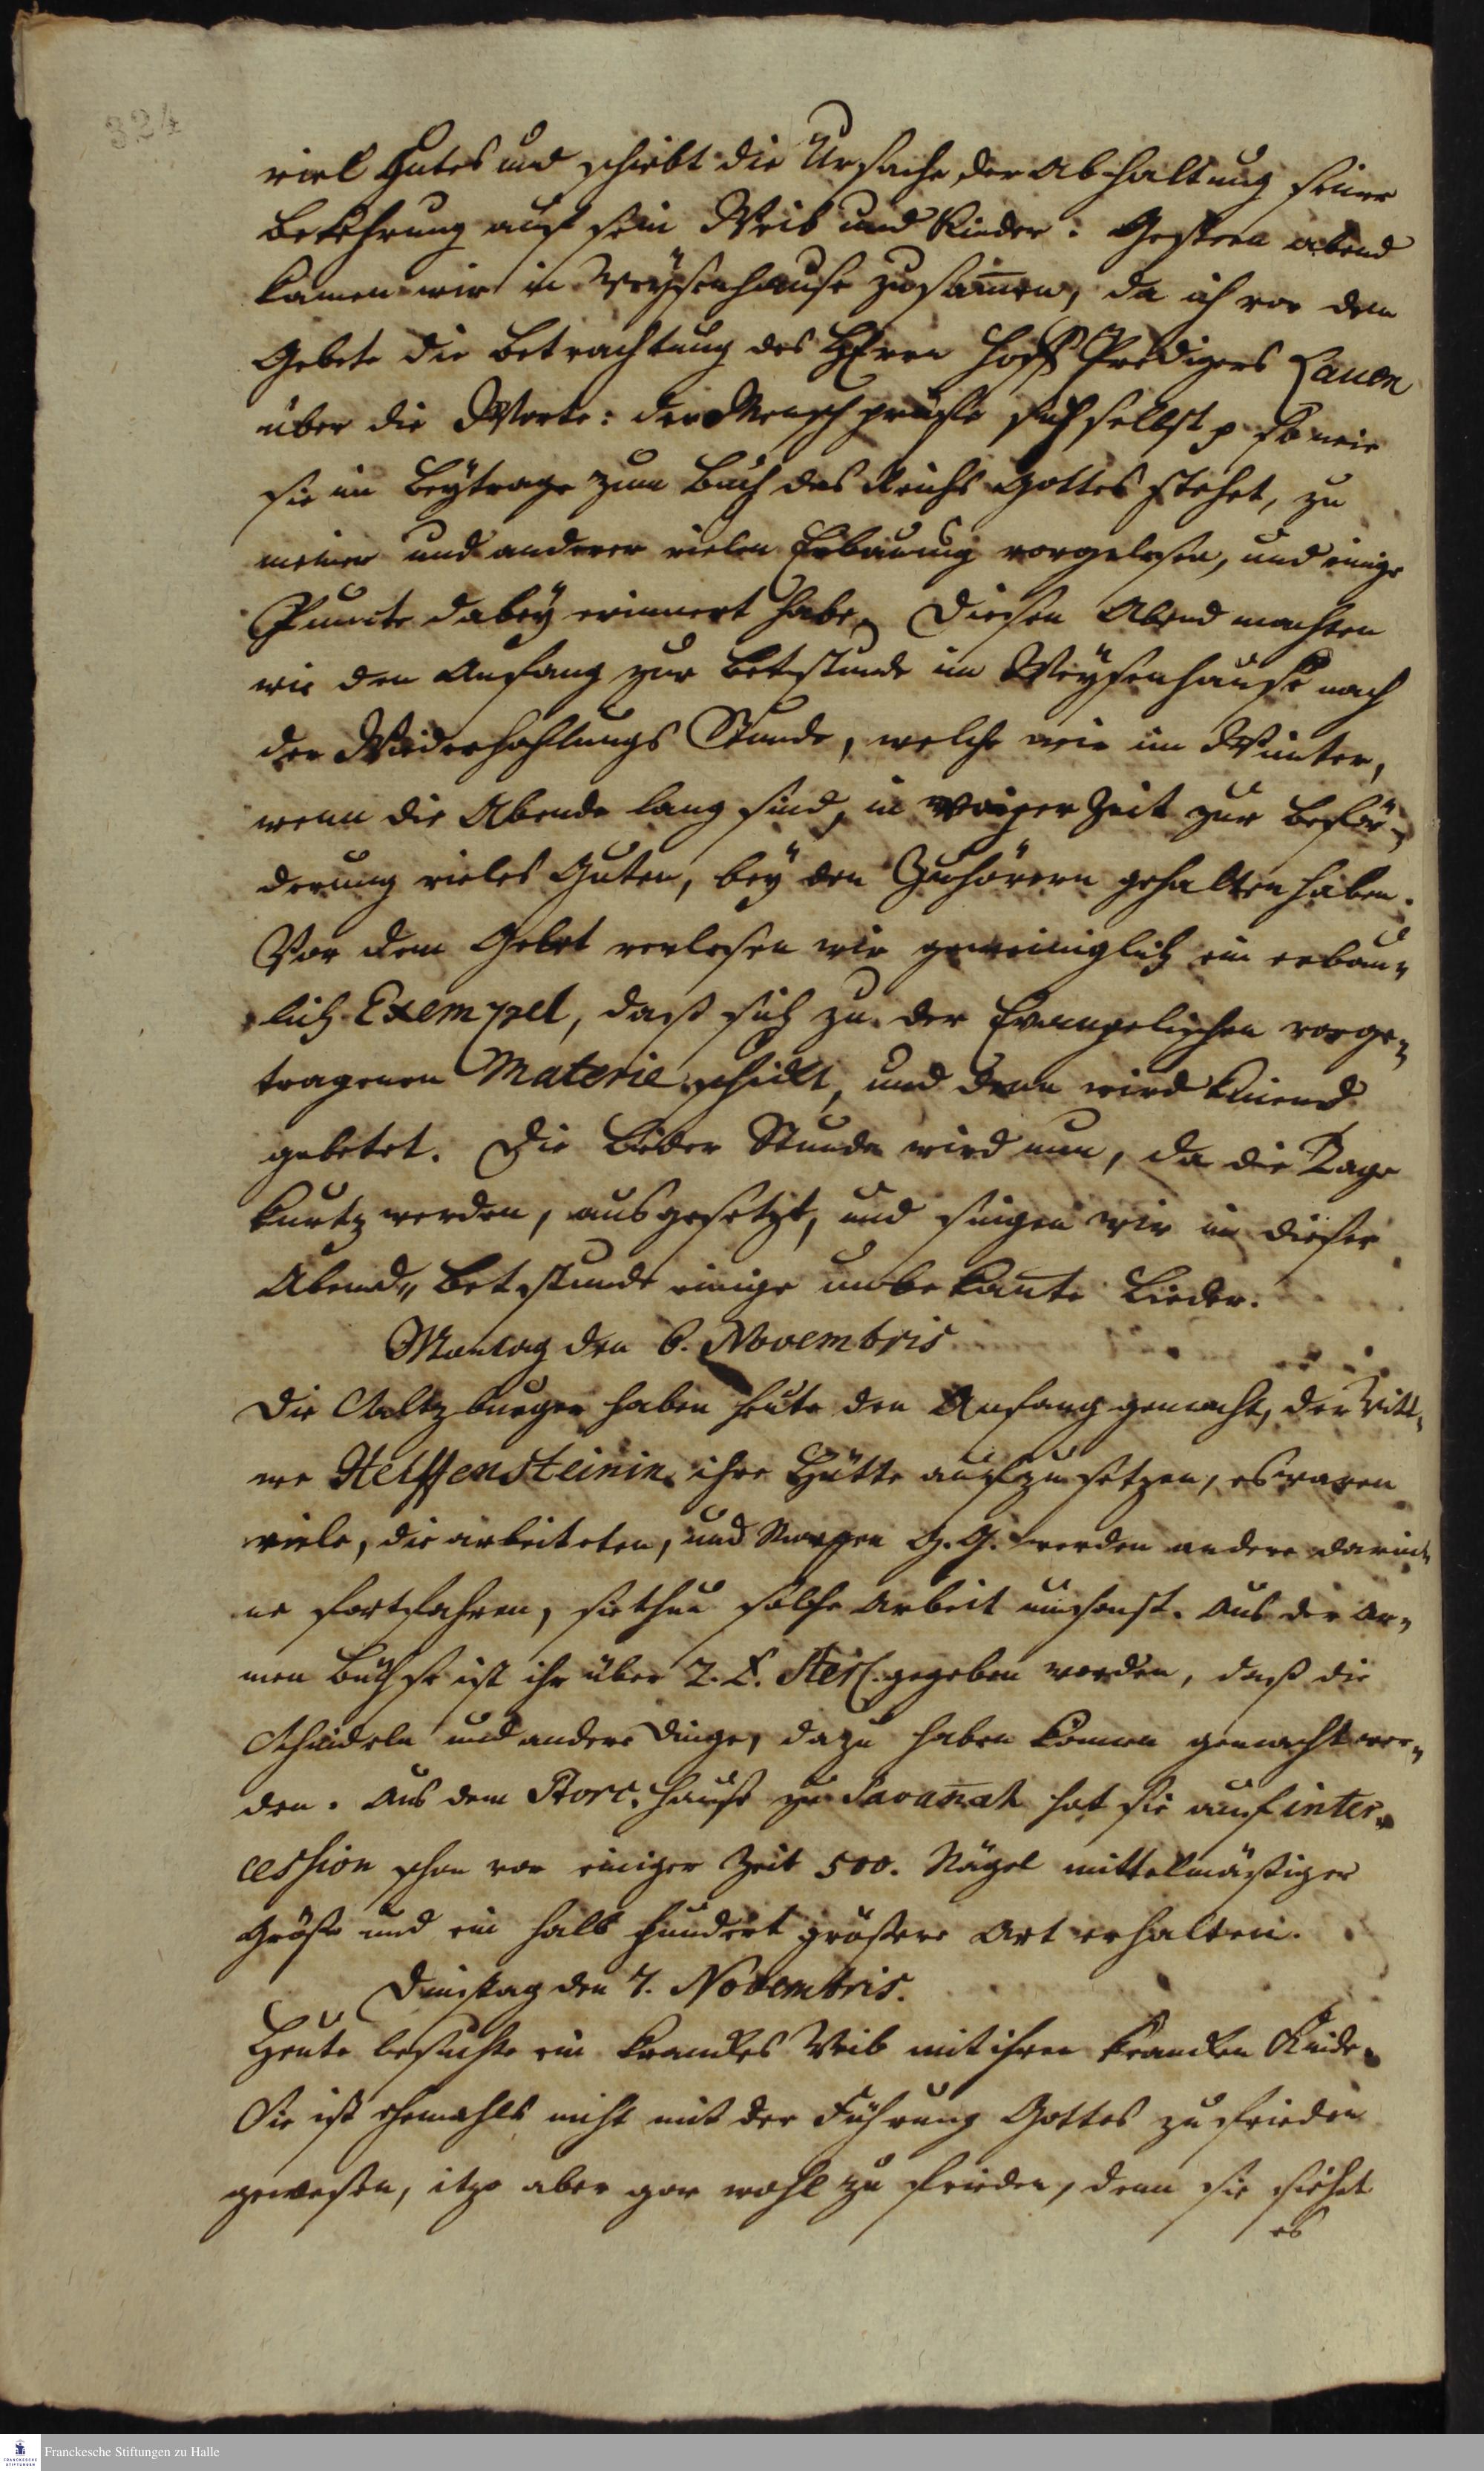 324
viel Gutes und schiebt die Ursache der Abhaltung seiner
bekehrung auf sein Weib und Kinder. Gestern abend
kamen wir in Weysenhause zusam̄en, da ich vor dem
Gebete die betrachtung des HErrn Hoff Predigers Lauen
über die Worte: der Mensch prüffe sich selbst p so wie
sie im Beytrage zum bau des Reichs Gottes stehet, zu
meiner und anderer vielen Erbauung vorgelesen, und einige
Puncte dabey erinnert habe. Diesen Abend machten
wir den Anfang zur betstunde im Weysenhause nach
der Wiederhohlungs Stunde, welche wir im Winter,
wenn die Abende lang sind, in voriger Zeit zur beför-
derung vieles Guten, bey den Zuhörern gehalten haben.
Vor dem Gebet verlesen wir gemeiniglich ein erbau-
lich Exempel, daß sich zu der Evangelischen vorge-
tragenen Materie schickt, und denn wird kniend
gebetet. Die Lieder Stunde wird nun, da die Tage
kurtz werden, ausgesetzt, und singen wir in dieser
Abend-betstunde einige unbekan̄te Lieder.
Montag den 6. Novembris
Die Saltzburger haben heute den Anfang gemacht, der Witt-
we Helffensteinin ihre Hütte aufzusetzen, es waren
viele, die arbeiteten, und Morgen G. G. werden andere darin-
ne fortfahren, sie thun solche Arbeit umsonst. Aus der Ar-
men büchse ist ihr über 2. £. Sterl. gegeben worden, daß die
Schindeln und andere Dinge, dazu haben können gemacht wer-
den. Aus dem Store-Hause zu Savan̄ah hat sie auf inter-
cession schon vor einiger Zeit 500. Nägel mittelmäßiger
Größe und ein halb hundert größere Art erhalten.
Dinstag den 7. Novembris.
Heute besuchte ein kranckes Weib mit ihren krancken Kinde.
Sie ist ehemahls nicht mit der Führung Gottes zufrieden
gewesen, itzo aber gar wohl zu frieden, denn sie siehet
es
Franckesche Stiftungen zu Halle